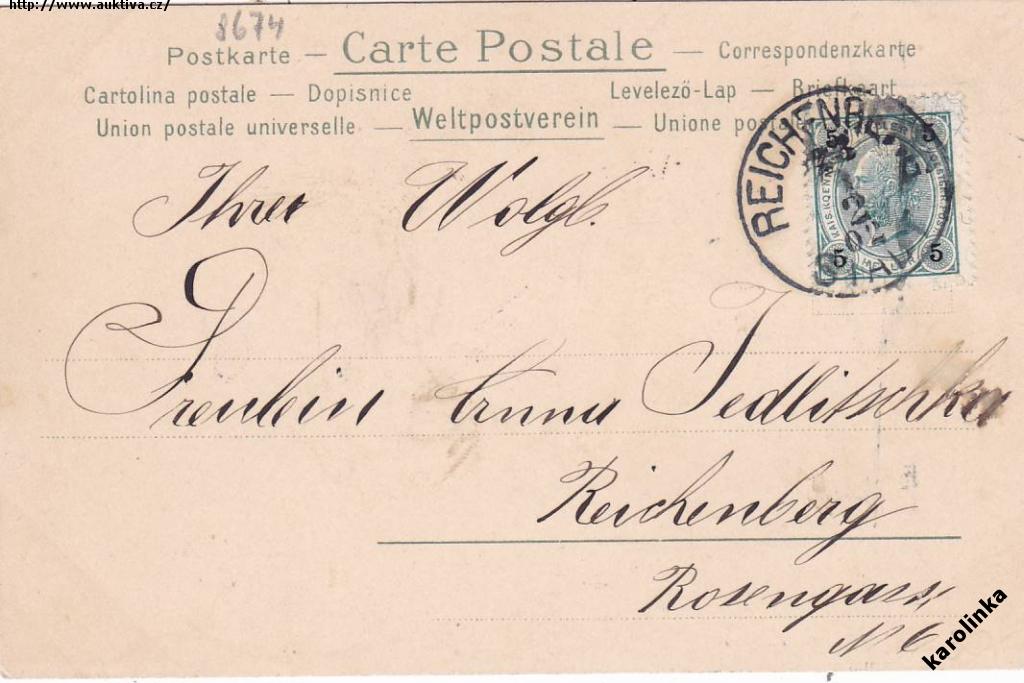 http://www.auktiva.cz/
8674
Postkarte — Carte Postale — Correspondenzkarte
Cartolina postale — Dopisnice Levelező-Lap — Briefkaart
Union postale universelle — Weltpostverein — Unione postale
REICHENBERG
STADT
5 5
5 5
Ihrer Wolgb.
Freulein Anna Jedlitschka
Reichenberg
Rosengasse
N 6
karolinka